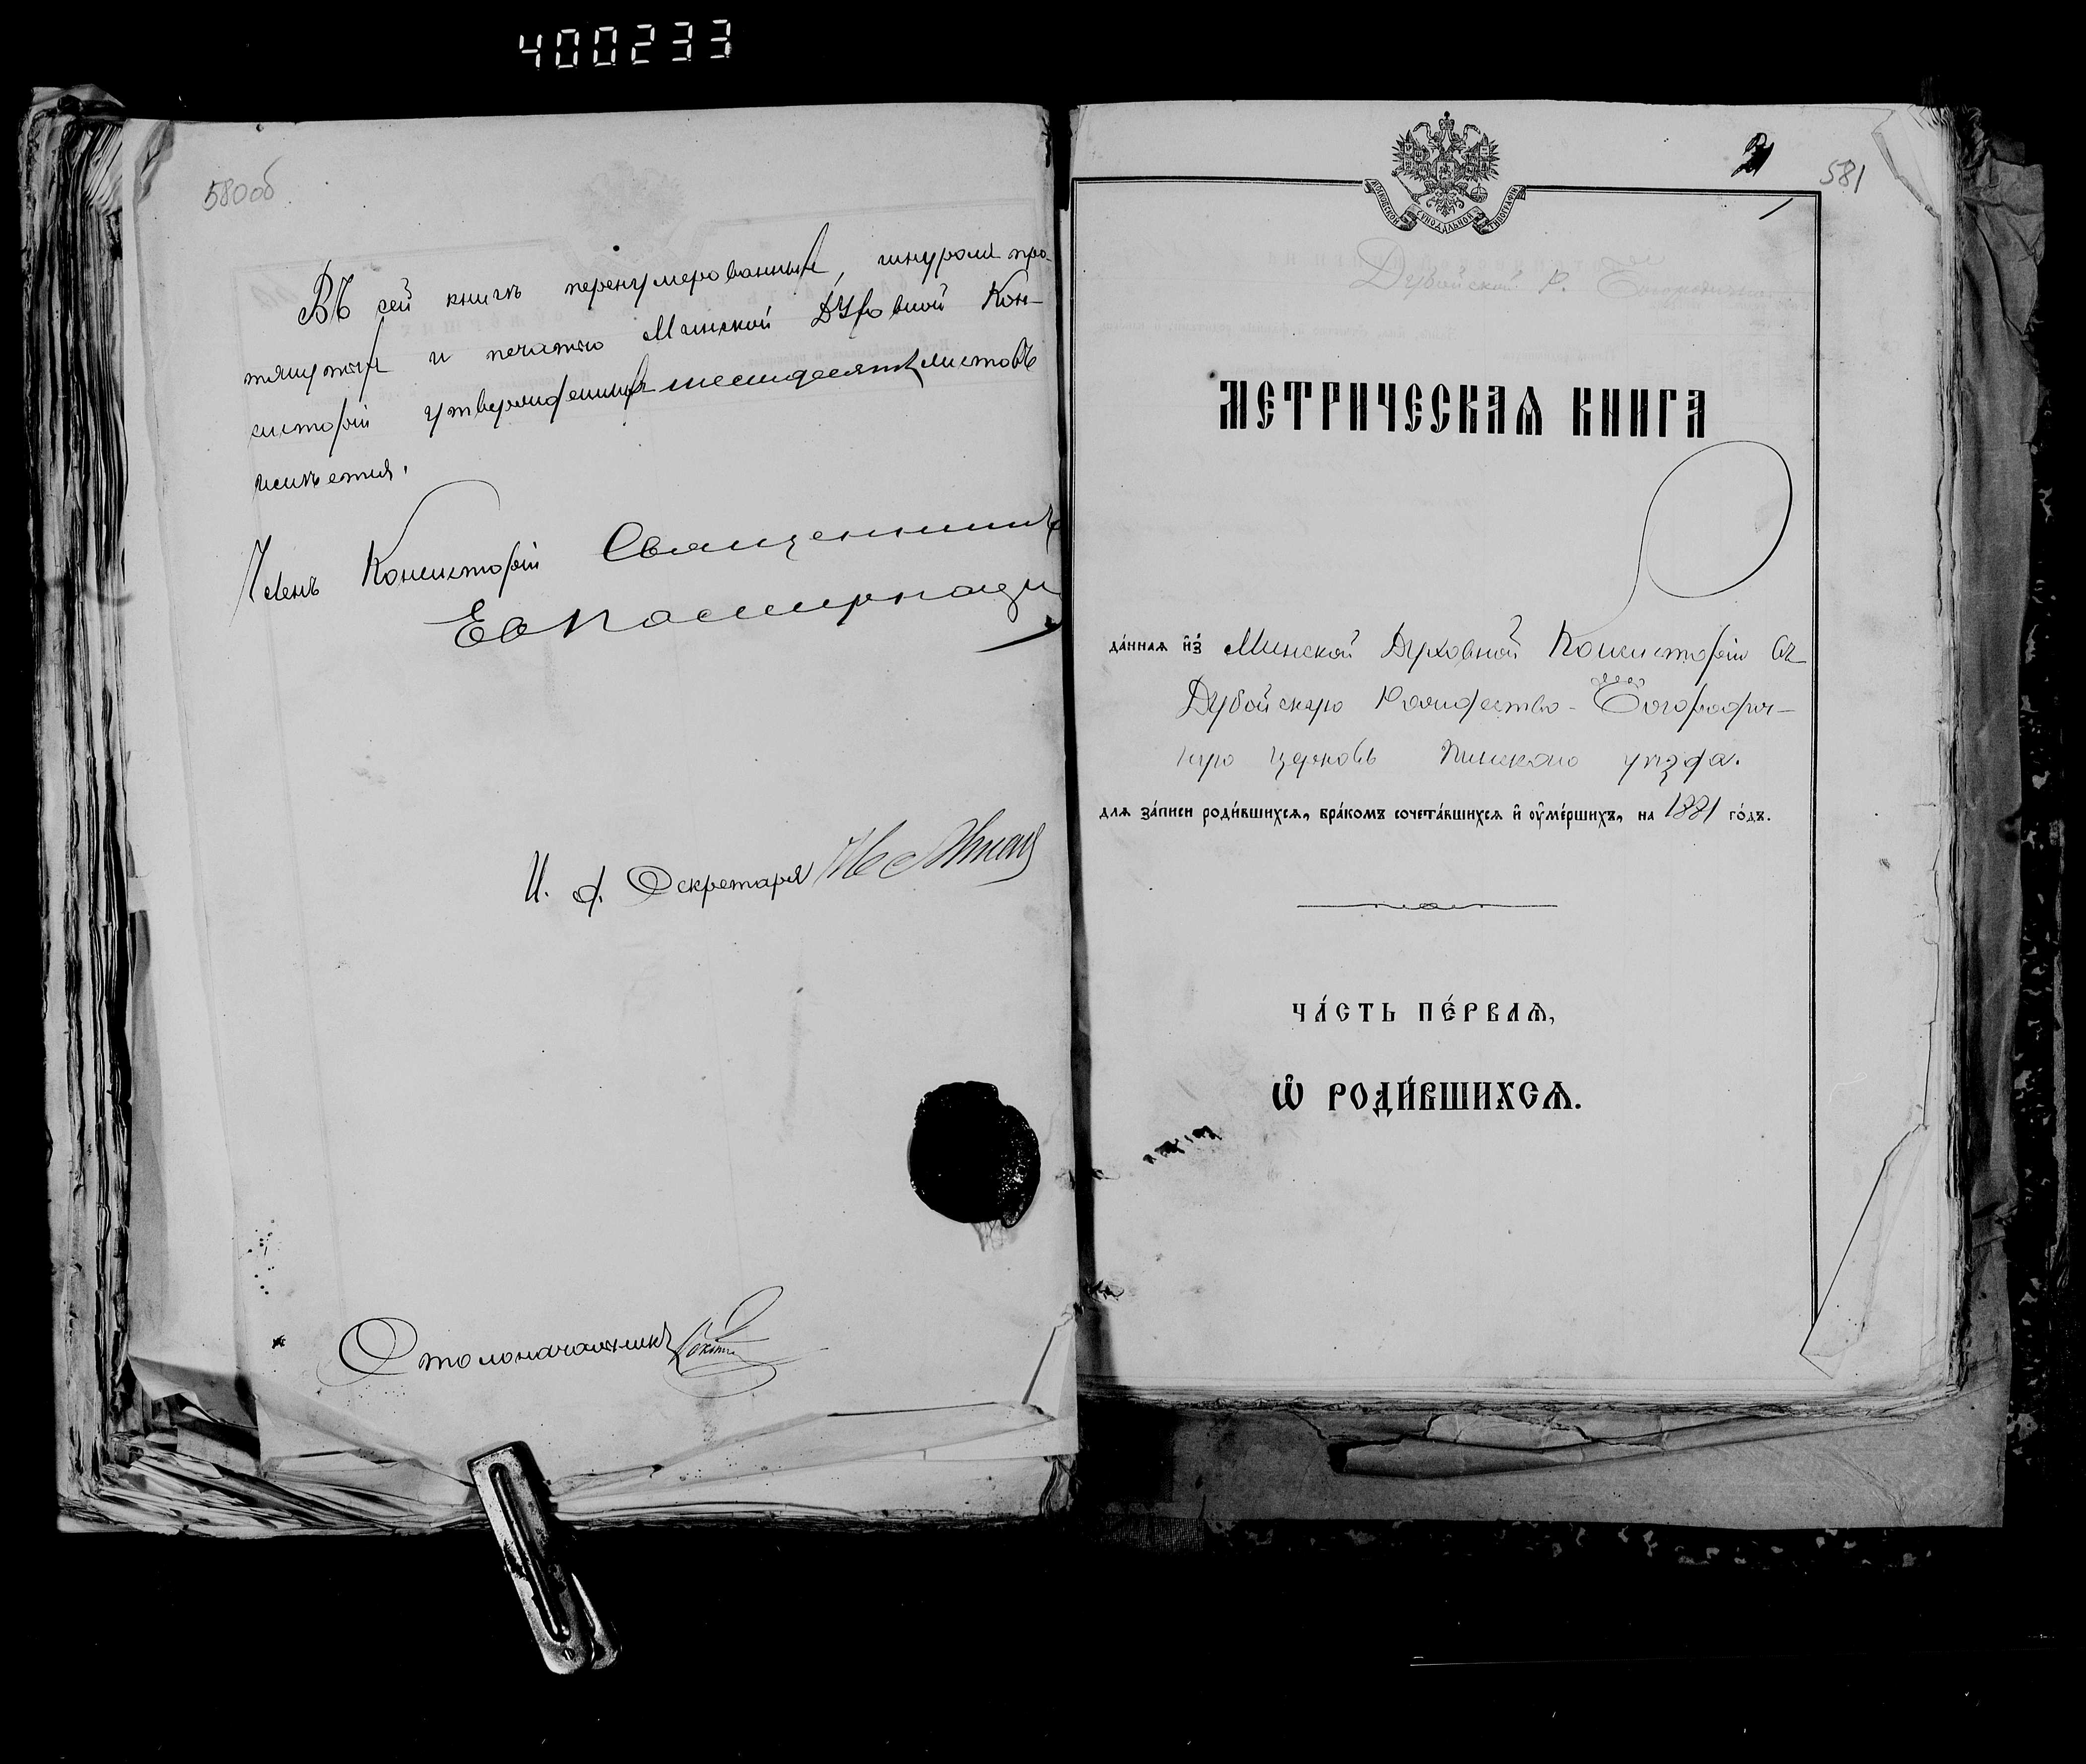 400233
580об
Въ сей книгѣ перенумерованныхъ, шнуромъ про-
тянутыхъ и печатью Минской Духовной Кон-
систоріи утвержденныхъ шестьдесятъ листовъ
Членъ Консисторіи Священникъ
И. д. Секретаря
Столоначальникъ
581
МОСКОВСКОЙ СѴНОДАЛЬНОЙ ТИПОГРАФІИ
Дубойской Р. Богородичной
МЕТРИЧЕСКАѦ КНИГА
да́ннаѧ и҆з̾ Минской Духовной Консисторіи въ
Дубойскую Рождество-Богородич-
ную церковь Пинскаго уѣзда.
длѧ за́писи роди́вшихсѧ, бра́комъ сочета́вшихсѧ и҆ ᲂу҆ме́ршихъ, на 1881 го́дъ.
ЧА́СТЬ ПЕ́РВАѦ,
Ѡ҆ РОДИ́ВШИХСѦ.